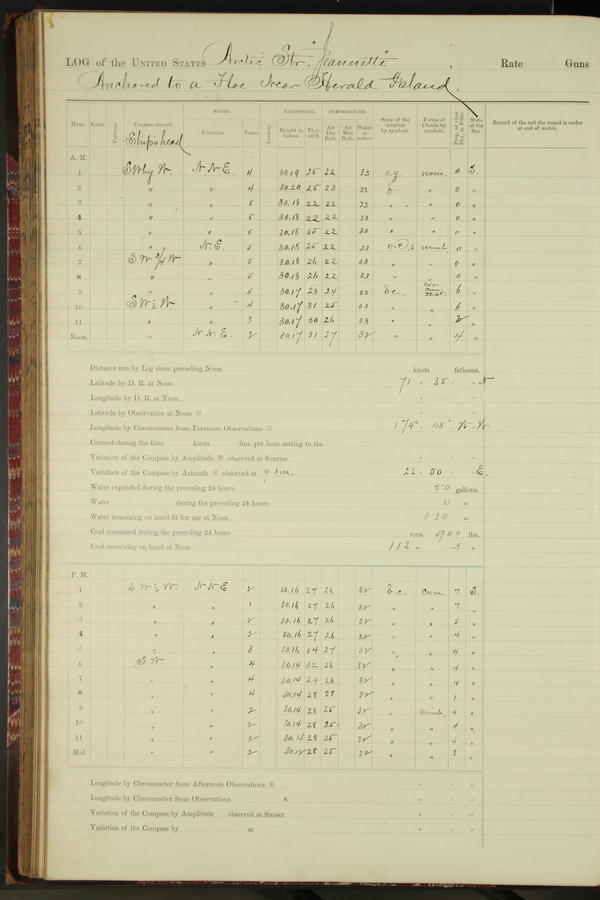 LOG of the UNITED STATES Arctic Str. "Jeannette", Rate Guns
Anchored to a Floe Near Herald Island.
Hour. Knots. Fathoms. Courses steered. WINDS. Direction. Force. Leeway. BAROMETER. Height in inches. Ther. att'd. TEMPERATURE. Air Dry Bulb. Air Wet Bulb. Water at surface State of the weather by symbols. Forms of Clouds by symbols. Prop. of clear sky, in 10ths. State of the Sea. Record of the sail the vessel is under at end of watch.
Ship's head
A. M.
1 SW by W. N.N.E. 4 30.19 25 22 33 none. 0 S.
2 " " 4 30.20 25 23 33 " 0 "
3 " " 5 30.18 22 22 33 " " 0 "
4 " " 5 30.18 22 22 33 " " 0 "
5 " " 6 30.18 25 22 33 " " 0 "
6 " N.E. 5 30.18 25 22 33 nimb. 0 "
7 " 5 30.18 26 22 33 " " 0 "
8 " " 5 30.18 26 22 33 " 0 "
9 " " 4 30.17 23 24 33 b.c. cir. cum. strat. 6 "
10 SW½W " 4 30.17 31 25 33 " " 6 "
11 " " 3 30.17 30 26 33 " " 2 "
Noon. " N.N.E. 2 30.17 31 27 32 " " 4 "
Distance run by Log since preceding Noon knots fathoms.
Latitude by D. R. at Noon 71 " 35 " " N
Longitude by D. R. at Noon " " "
Latitude by Observation at Noon " " "
Longitude by Chronometer from Forenoon Observations 174°
Current during the time knots fms. per hour setting to the
Variation of the Compass by Amplitude observed at Sunrise " " "
Variation of the Compass by Azimuth observed at 22 " 50 " E.
Water expended during the preceding 24 hours 50 gallons.
Water during the preceding 24 hours 0 "
Water remaining on hand fit for use at Noon 330 "
Coal consumed during the preceding 24 hours tons, 900 lbs.
Coal remaining on hand at Noon 112 " "
P. M.
1 SW½W. N.N.E 2 30.16 27 26 32 b.c. cum. 7 S.
2 " " 1 30.16 27 26 32 " " 7 "
3 " " 2 30.16 27 26 32 " " 5 "
4 " " 2 30.16 27 26 32 " " 4 "
5 " " 3 30.16 34 27 32 " " 4 "
6 S.W " 4 30.14 32 26 32 " " 4 "
7 " " 4 30.14 29 26 32 " " 4 "
8 " " 4 30.14 28 28 32 " " 1 "
9 " " 2 30.14 28 25 32 " nimb. 4 "
10 " " 2 30.14 28 25 32 " " 4 "
11 " " 2 30.13 28 25 32 " " 3 "
Mid. " " 2 30.12 28 25 32 " " 3 "
Longitude by Chronometer from Afternoon Observations " " "
Longitude by Chronometer from Observations * " " "
Variation of the Compass by Amplitude observed at Sunset " " "
Variation of the Compass by at " " "